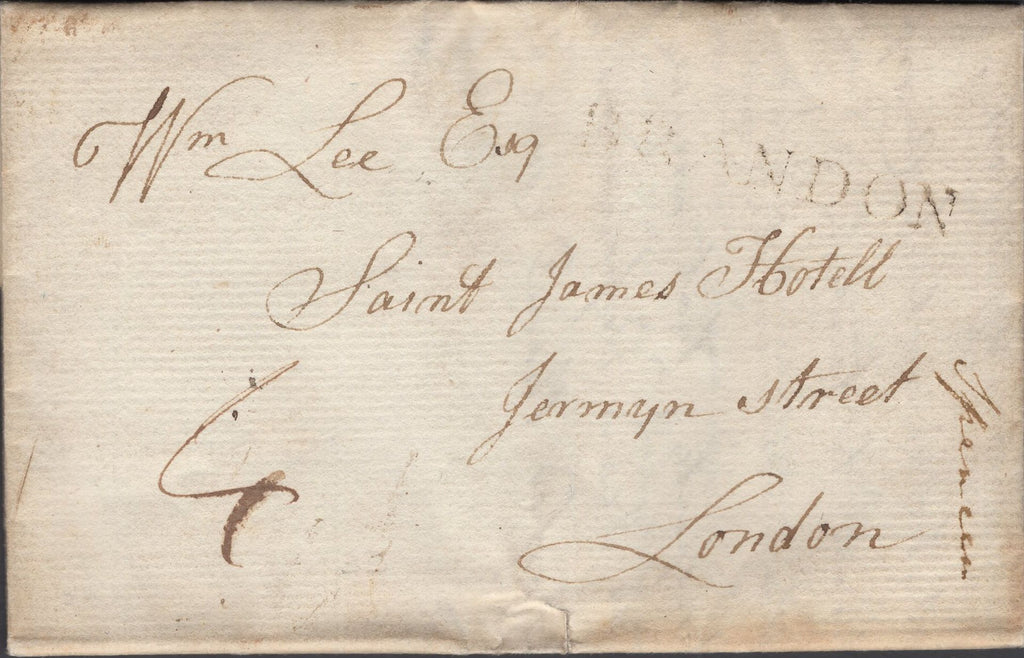 Wm Lee Esq
BRANDON
Saint James Hotell
Jermyn street
London
4